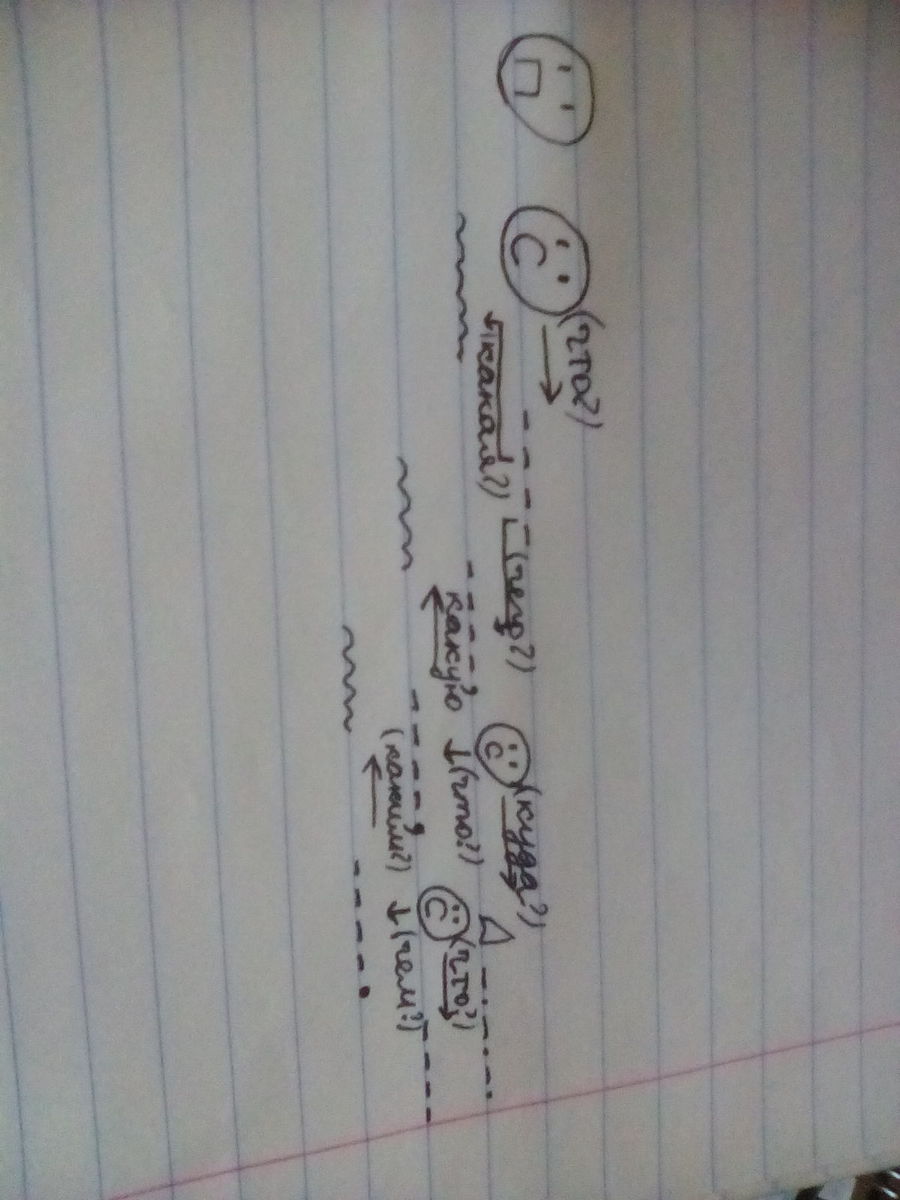 (что?) (чего?) (куда?)
(какая?) какую (что?) (что?)
(каким?) (чем?)